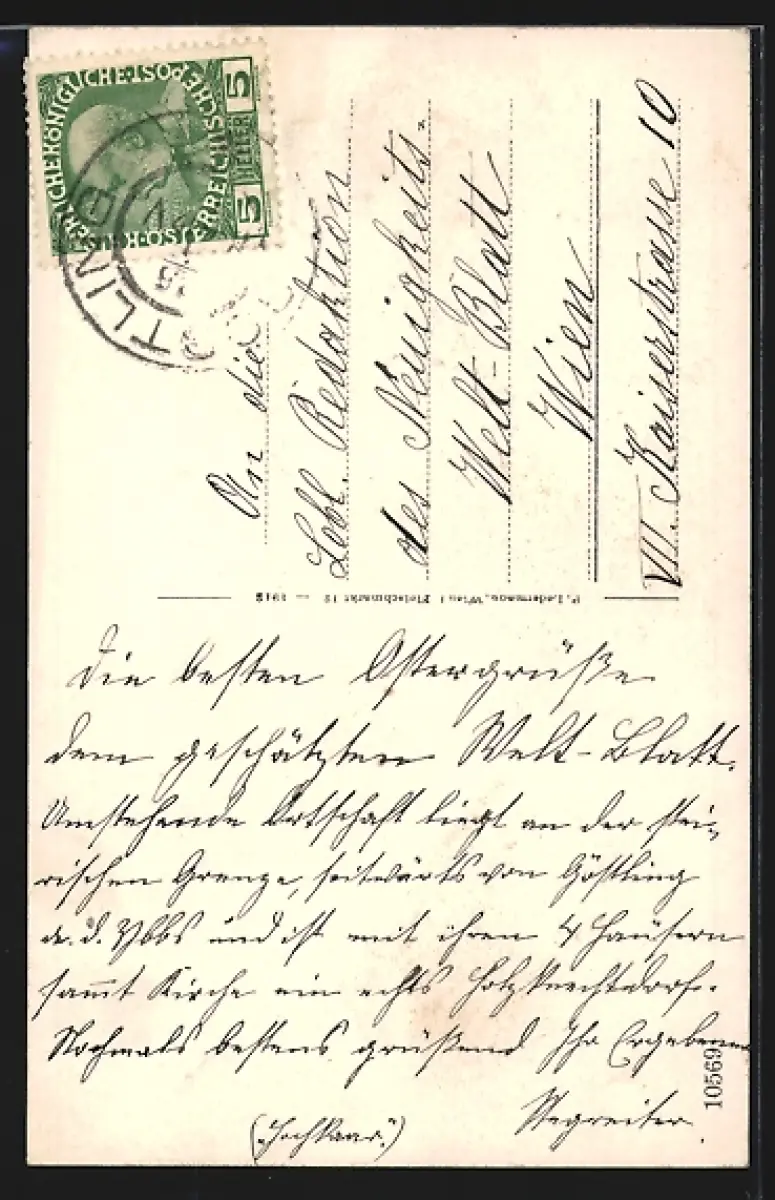 KAISERLICHEKÖNIGLICHE ÖSTERREICHISCHE POST
5 HELLER 5
An die
Löbl. Redaktion
des Neuigkeits-
Welt-Blatt
Wien
VII. Kaiserstrasse 10
P. Ledermann, Wien I Fleischmarkt 12 — 1912
Die besten Ostergrüße
dem geschätzten Welt-Blatt.
Umstehende Ortschaft liegt an der stei-
rischen Grenze, seitwärts von Göstling
a. d. Ybbs und ist mit ihren 4 Häusern
sammt Kirche ein echtes Holzknechtdorf.
Nochmals bestens grüßend Ihr Ergebener
Stegreiter.
("Hochkaar")
10569